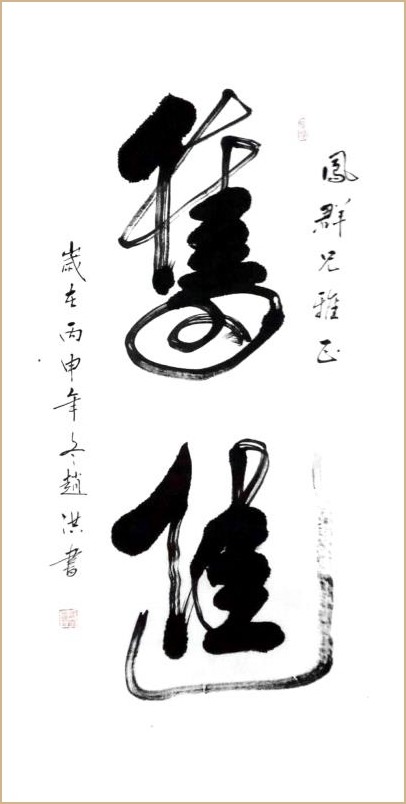 鳳群兄雅正
奮進
歲在丙申年冬趙洪書